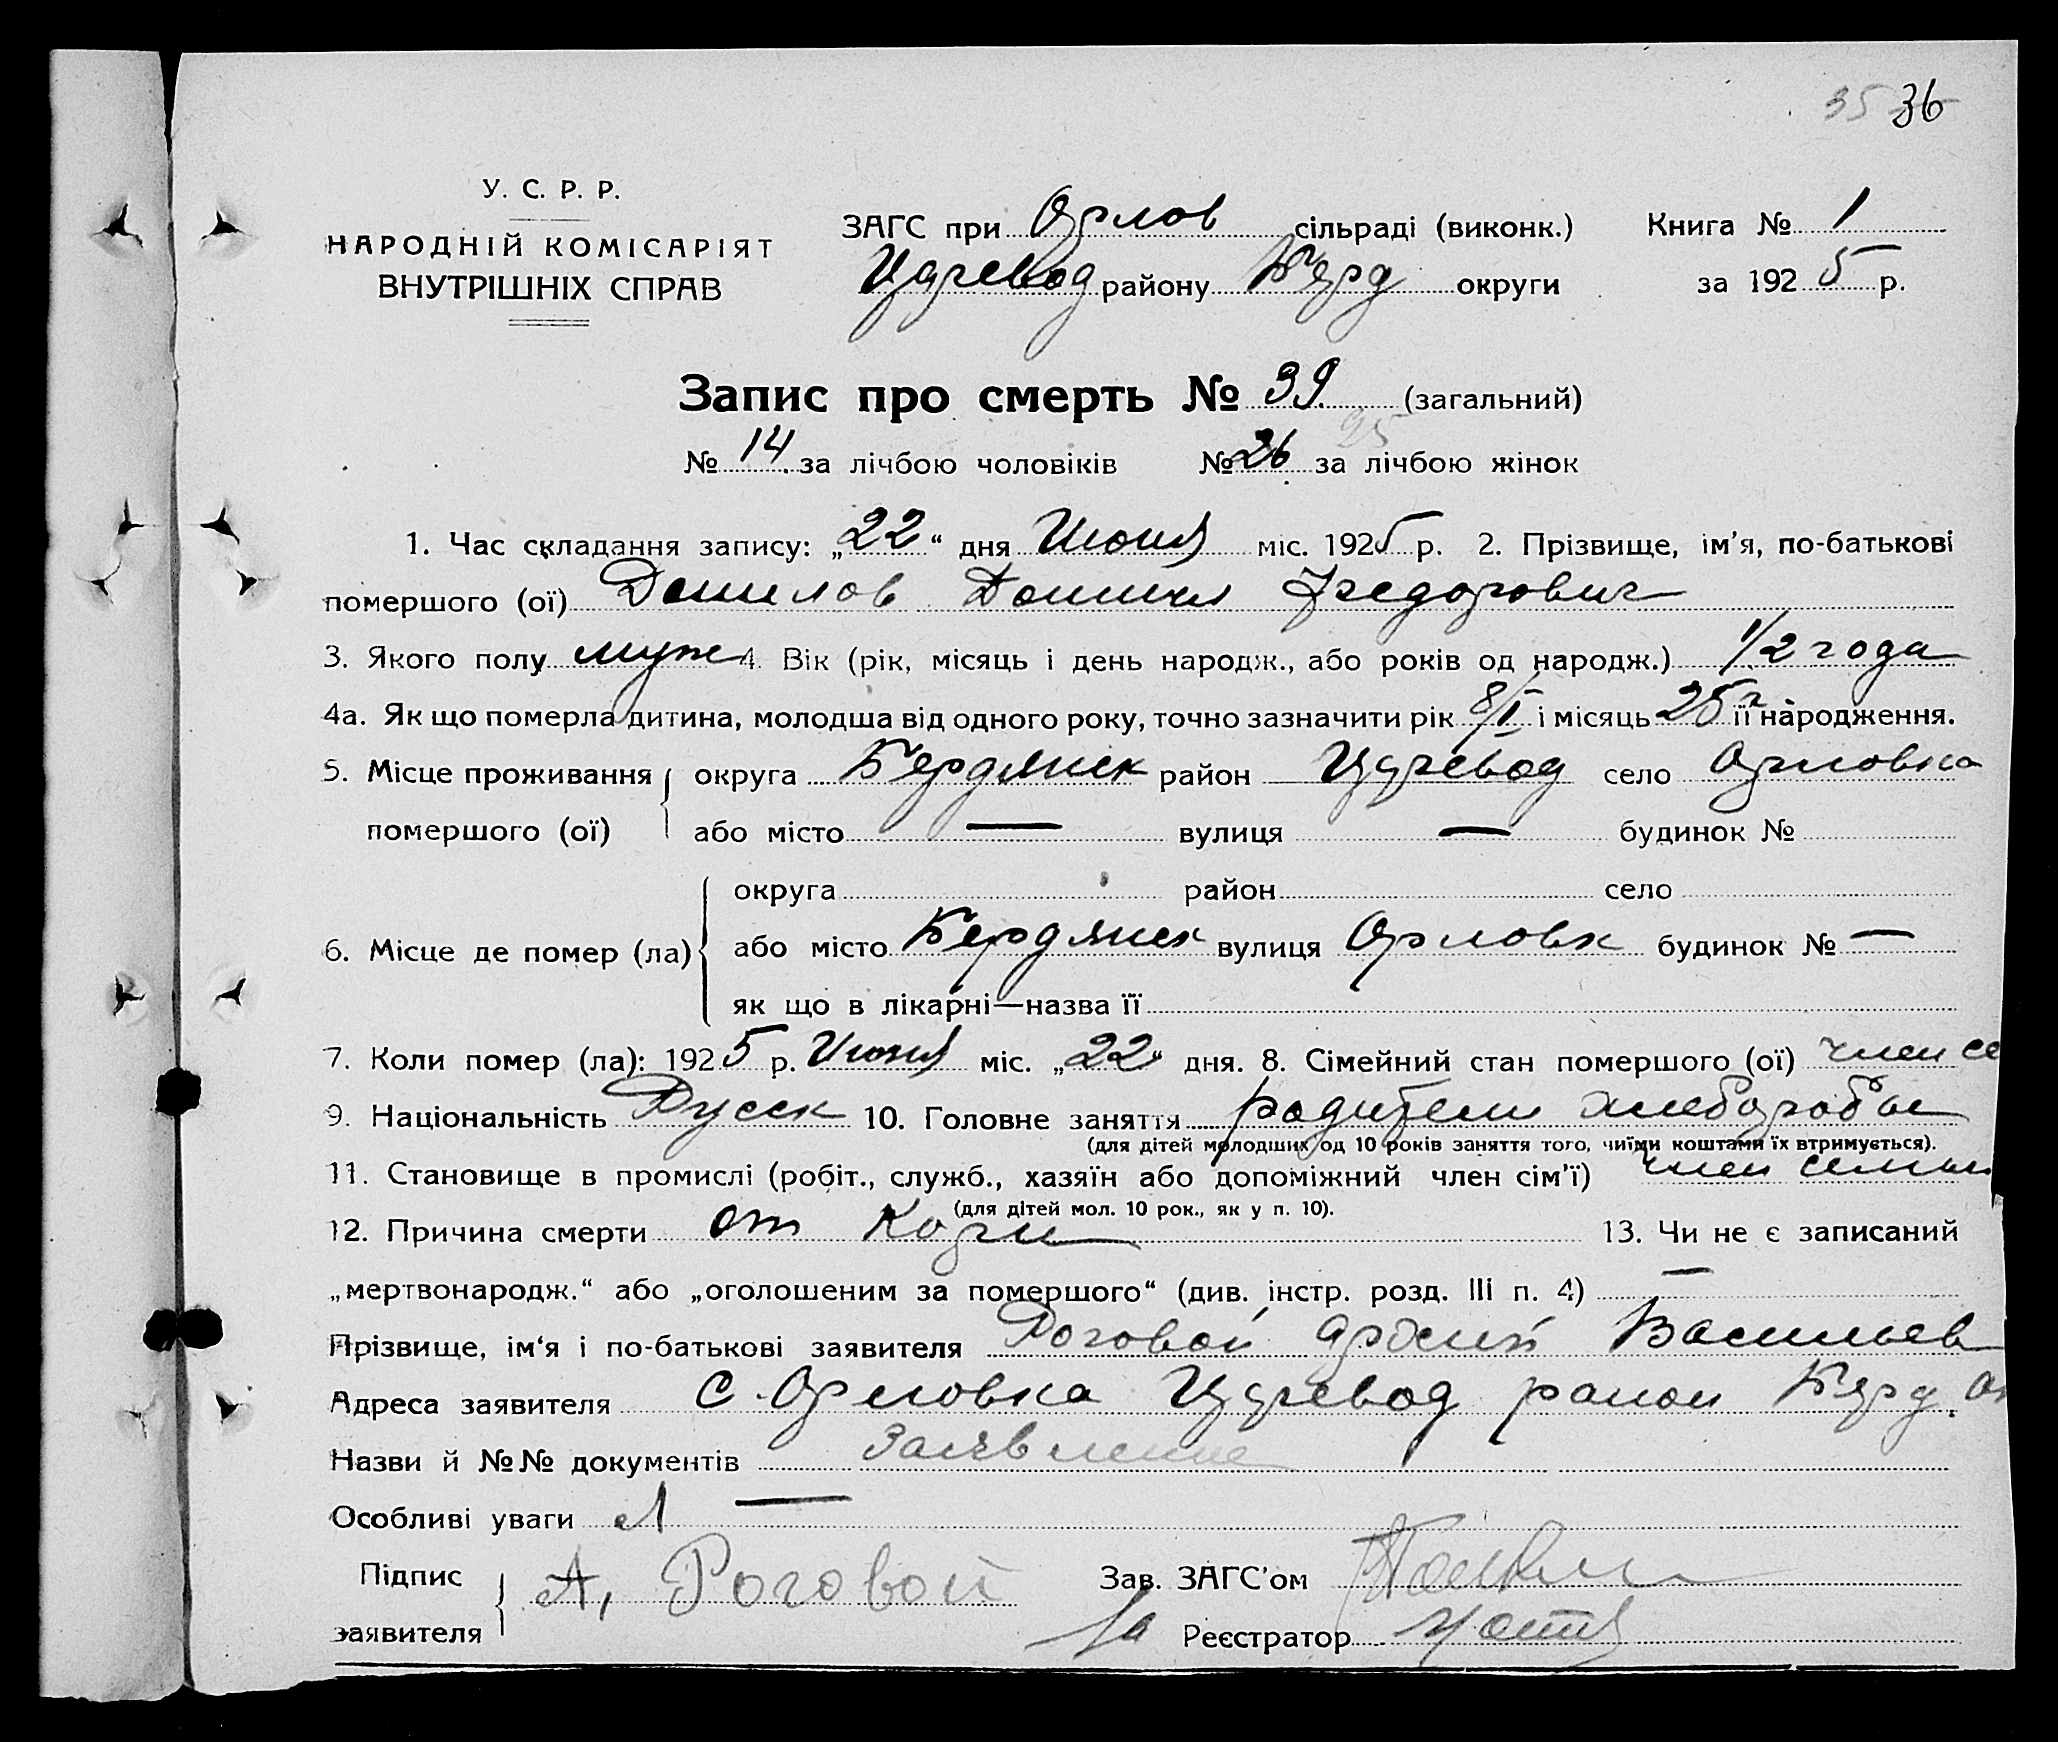 35 36
У. С. Р. Р.
НАРОДНІЙ КОМІСАРІЯТ
ВНУТРІШНІХ СПРАВ
ЗАГС при Орлов сільраді (виконк.) Книга № 1
Царевод району Бярд округи за 1925 р.
Запис про смерть № 39 (загальний)
25
№ 14 за лічбою чоловіків № 26 за лічбою жінок
1. Час складання запису: „22“ дня Июня міс. 1925 р. 2. Прізвище, ім’я, по-батькові
помершого (ої) Данилов Даниил Федорович
3. Якого полу муж 4. Вік (рік, місяць і день народж., або років од народж.) 1/2 года
4а. Як що померла дитина, молодша від одного року, точно зазначити рік 8/I і місяць 25 г її народження.
5. Місце проживання округа Бердянск район Царевод село Орловка
помершого (ої) або місто — вулиця — будинок №
округа район село
6. Місце де помер (ла) або місто Бердянск вулиця Орловк будинок № —
як що в лікарні—назва її
7. Коли помер (ла): 1925 р. Июня міс. „22“ дня. 8. Сімейний стан помершого (ої) член се
9. Національність Русск 10. Головне заняття родители хлеборобы
(для дітей молодших од 10 років заняття того, чиїми коштами їх втримується).
11. Становище в промислі (робіт., служб., хазяїн або допоміжний член сім’ї) член семьи
(для дітей мол. 10 рок., як у п. 10).
12. Причина смерти от Кори 13. Чи не є записаний
„мертвонародж.“ або „оголошеним за помершого“ (див. інстр. розд. III п. 4) —
Прізвище, ім‘я і по-батькові заявителя Роговой Васильев
Адреса заявителя с. Орловка Царевод район Бярд. Ок
Назви й №№ документів Заявление
Особливі уваги —
Підпис
заявителя А, Роговой
Зав. ЗАГС’ом
Реєстратор